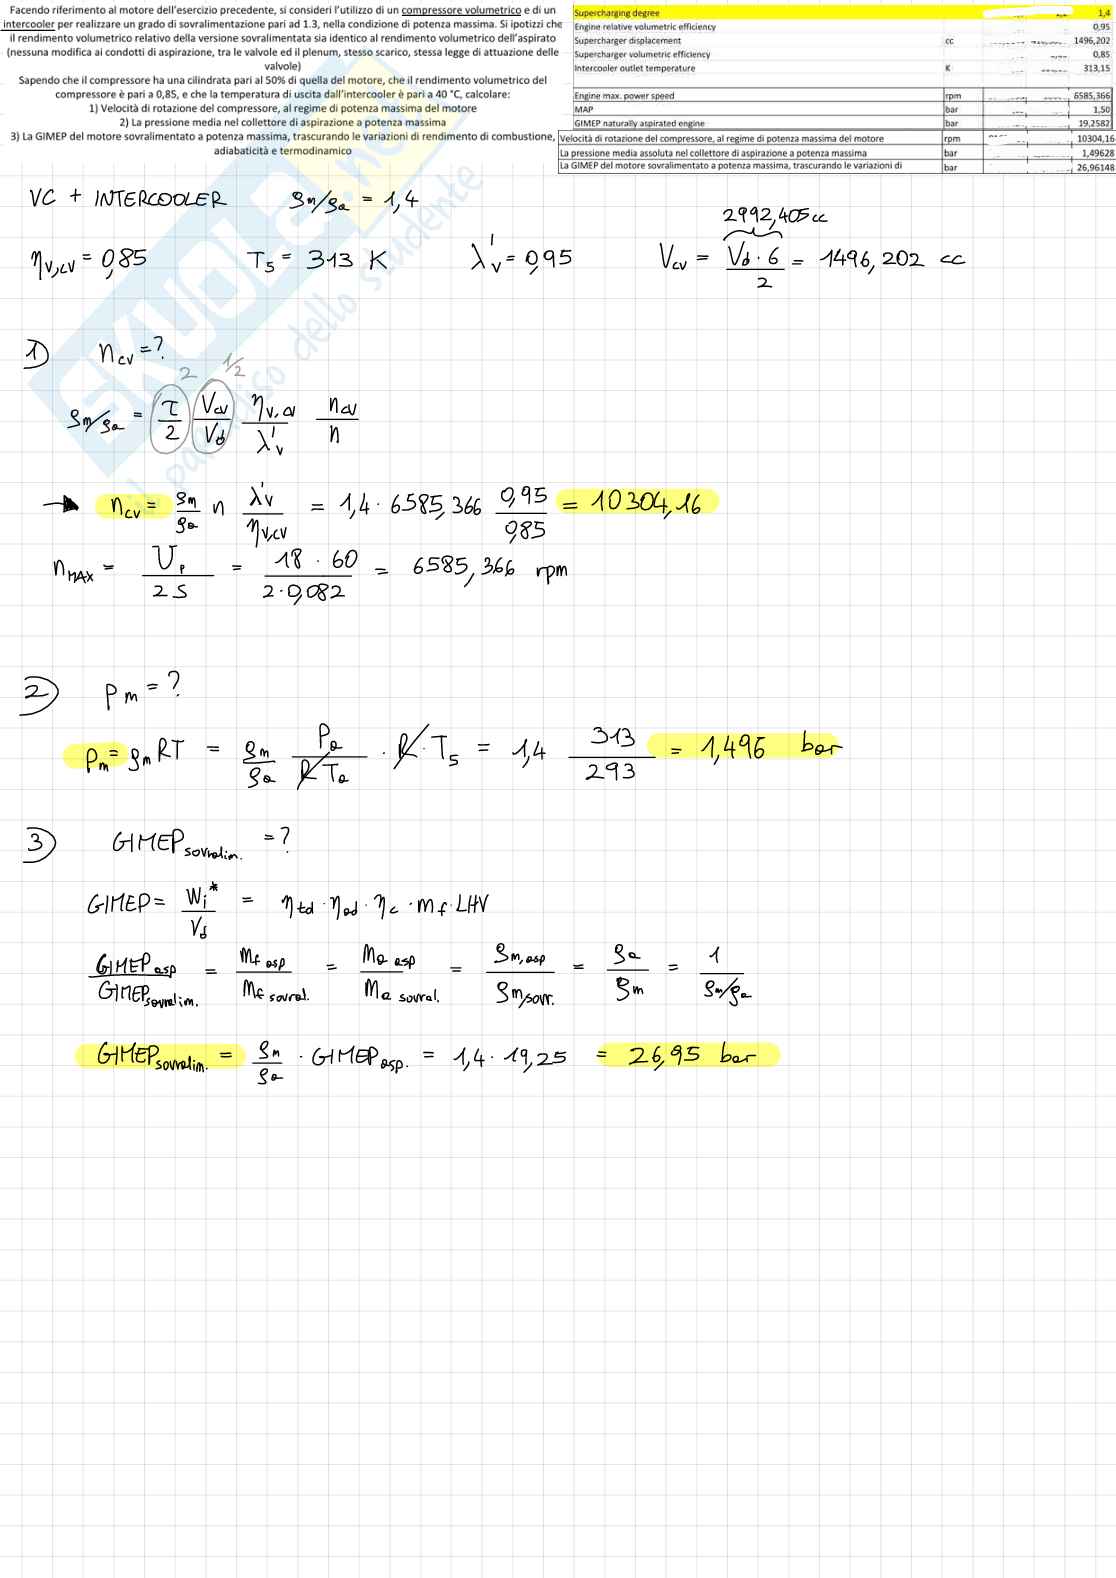 Facendo riferimento al motore dell'esercizio precedente, si consideri l'utilizzo di un compressore volumetrico e di un
intercooler per realizzare un grado di sovralimentazione pari ad 1.3, nella condizione di potenza massima. Si ipotizzi che
il rendimento volumetrico relativo della versione sovralimentata sia identico al rendimento volumetrico dell'aspirato
(nessuna modifica ai condotti di aspirazione, tra le valvole ed il plenum, stesso scarico, stessa legge di attuazione delle
valvole)
Sapendo che il compressore ha una cilindrata pari al 50% di quella del motore, che il rendimento volumetrico del
compressore è pari a 0,85, e che la temperatura di uscita dall'intercooler è pari a 40 °C, calcolare:
1) Velocità di rotazione del compressore, al regime di potenza massima del motore
2) La pressione media nel collettore di aspirazione a potenza massima
3) La GIMEP del motore sovralimentato a potenza massima, trascurando le variazioni di rendimento di combustione,
adiabaticità e termodinamico
Supercharging degree 1,4
Engine relative volumetric efficiency 0,95
Supercharger displacement cc 1496,202
Supercharger volumetric efficiency 0,85
Intercooler outlet temperature K 313,15
Engine max. power speed rpm 6585,366
MAP bar 1,50
GIMEP naturally aspirated engine bar 19,2582
Velocità di rotazione del compressore, al regime di potenza massima del motore rpm 10304,16
La pressione media assoluta nel collettore di aspirazione a potenza massima bar 1,49628
La GIMEP del motore sovralimentato a potenza massima, trascurando le variazioni di bar 26,96148
VC + INTERCOOLER ρm/ρa = 1,4
2992,405 cc
ηv,cv = 0,85 T5 = 313 K λ'v = 0,95 Vcv = Vd · 6 / 2 = 1496,202 cc
1) ncv = ?
2 1/2
ρm/ρa = τ/2 Vcv/Vd ηv,cv/λ'v ncv/n
→ ncv = ρm/ρa n λ'v/ηv,cv = 1,4 · 6585,366 0,95/0,85 = 10304,16
nMAX = Up / 2S = 18 · 60 / 2 · 0,082 = 6585,366 rpm
2) Pm = ?
Pm = ρm RT = ρm/ρa Pa/RTa · R · T5 = 1,4 313/293 = 1,496 bar
3) GIMEP sovralim. = ?
GIMEP = Wi*/Vd = ηtd · ηad · ηc · mf · LHV
GIMEP asp / GIMEP sovralim. = mf asp / mf sovral. = ma asp / ma sovral. = ρm,asp / ρm,sovr. = ρa/ρm = 1 / ρm/ρa
GIMEP sovralim. = ρm/ρa · GIMEP asp. = 1,4 · 19,25 = 26,95 bar
SKUOLA.net
il paradiso dello studente